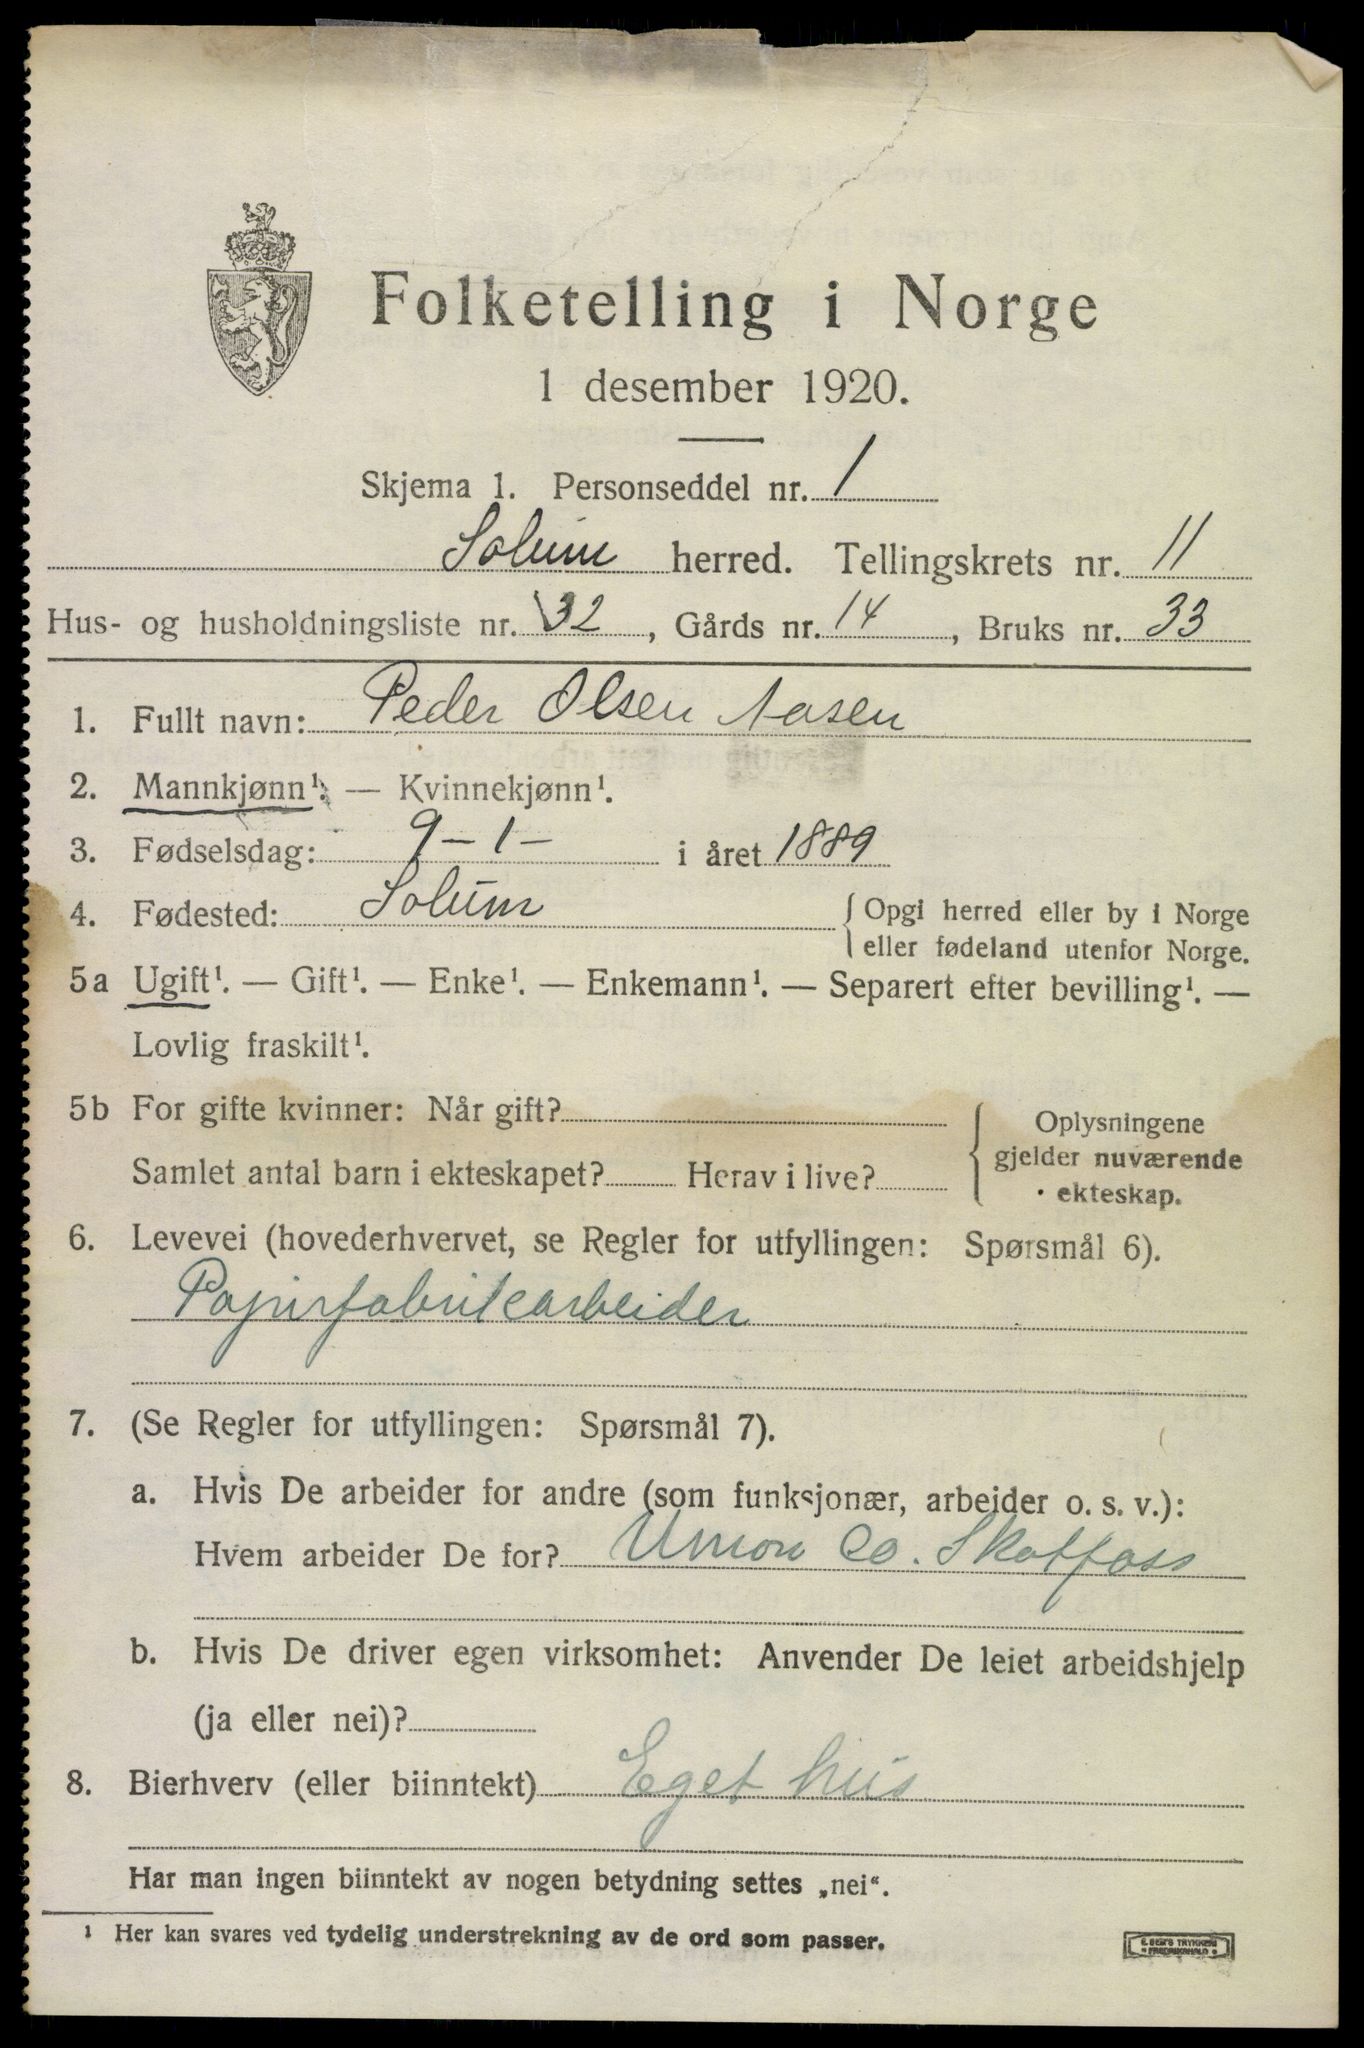 Folketelling i Norge
1 desember 1920.
Skjema 1. Personseddel nr. 1
Solum herred. Tellingskrets nr. 11
Hus- og husholdningsliste nr. 32, Gårds nr. 14, Bruks nr. 33
1. Fullt navn: Peder Olsen Aasen
2. Mannkjønn¹. — Kvinnekjønn¹.
3. Fødselsdag: 9-1- i året 1889
4. Fødested: Solum { Opgi herred eller by i Norge
eller fødeland utenfor Norge.
5a Ugift¹. — Gift¹. — Enke¹. — Enkemann¹. — Separert efter bevilling¹. —
Lovlig fraskilt¹.
5b For gifte kvinner: Når gift?
Samlet antal barn i ekteskapet? Herav i live?
{ Oplysningene
gjelder nuværende
ekteskap.
6. Levevei (hovederhvervet, se Regler for utfyllingen: Spørsmål 6).
Papirfabrikarbeider
7. (Se Regler for utfyllingen: Spørsmål 7).
a. Hvis De arbeider for andre (som funksjonær, arbeider o. s. v.):
Hvem arbeider De for? Union Co. Skotfoss
b. Hvis De driver egen virksomhet: Anvender De leiet arbeidshjelp
(ja eller nei)?
8. Bierhverv (eller biinntekt) Eget hus
Har man ingen biinntekt av nogen betydning settes „nei“.
¹ Her kan svares ved tydelig understrekning av de ord som passer.
E. SEM'S TRYKKERI
FREDRIKSHALD